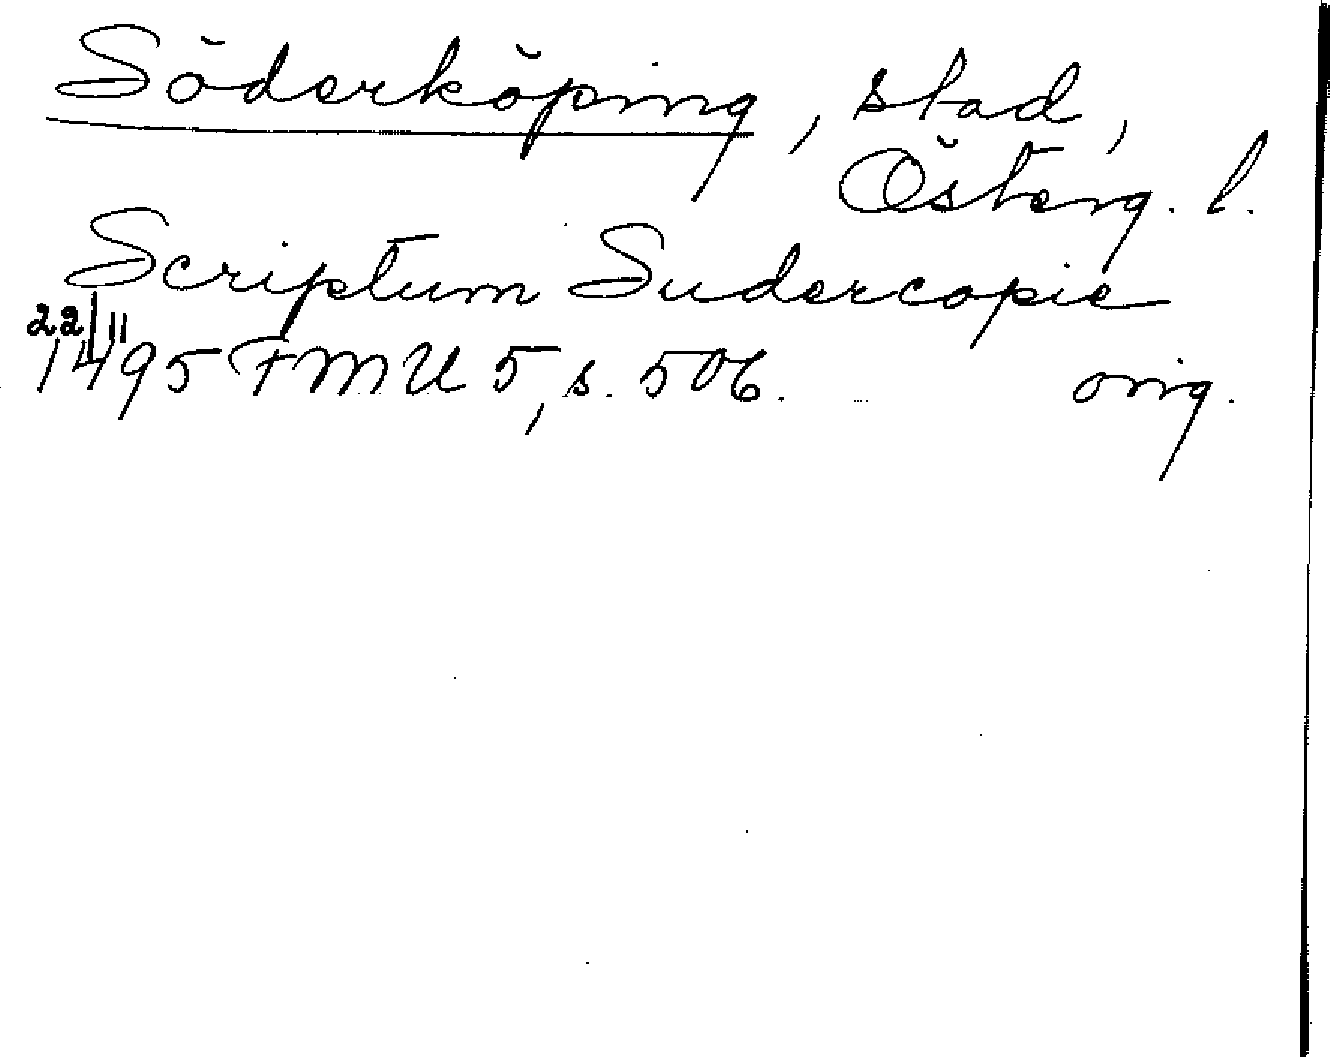 Söderköping, stad,
Österg. l.
Scriptum Sudercopie
22/11
1495 FMU 5, s. 506. orig.